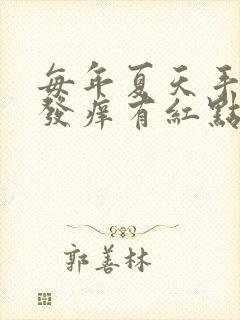 每年夏天手
發痒有紅點
郭善林